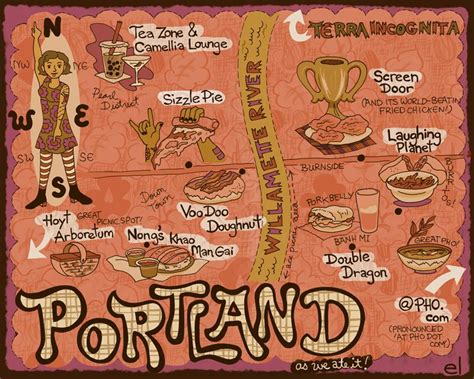 N
NW
NE
W
E
SW
SE
S
Tea Zone &
Camellia Lounge
Pearl
District
Sizzle Pie
WILLAMETTE RIVER
TERRA INCOGNITA
Screen
Door
(AND ITS WORLD-BEATIN'
FRIED CHICKEN!)
Laughing
Planet
BURNSIDE
Down
Town
VooDoo
Doughnut
Hoyt
Arboretum
GREAT
PICNIC SPOT!
Nong's Khao
Man Gai
PORK BELLY
BANH MI
Double
Dragon
GREAT PHO!
@PHO.
com
(PRONOUNCED
'AT PHO DOT
COM')
PORTLAND
as we ate it!
el